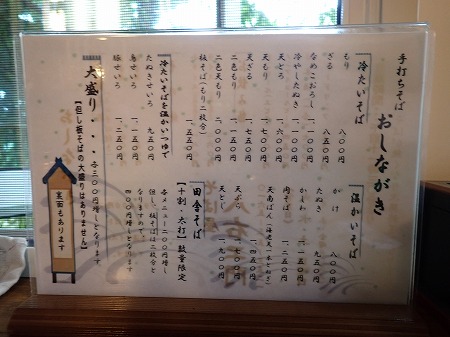 手打ちそば
おしながき
冷たいそば
もり 八〇〇円
ざる 八五〇円
なめこおろし 一、一〇〇円
冷やしたぬき 一、一〇〇円
天とろ 一、六〇〇円
天もり 一、七〇〇円
天ざる 一、七五〇円
二色もり 一、一〇〇円
二色天もり 二、〇〇〇円
板そば(もり二枚分) 一、五五〇円
冷たいそばを温かいつゆで
たぬきせいろ 九五〇円
鳥せいろ 一、一五〇円
豚せいろ 一、二五〇円
温かいそば
かけ 八〇〇円
たぬき 九五〇円
かしわ 一、一五〇円
天南ばん(海老天一本とねぎ) 一、四五〇円
天ぷら 一、七〇〇円
天とじ 一、九〇〇円
田舎そば
【十割・太打】数量限定
各メニュー二〇〇円増し
但し、板そばは二枚分と
なりますので
四〇〇円増しとなります
大盛り・・・各三〇〇円増しとなります
【但し板そばの大盛りはありません】
裏面もあります